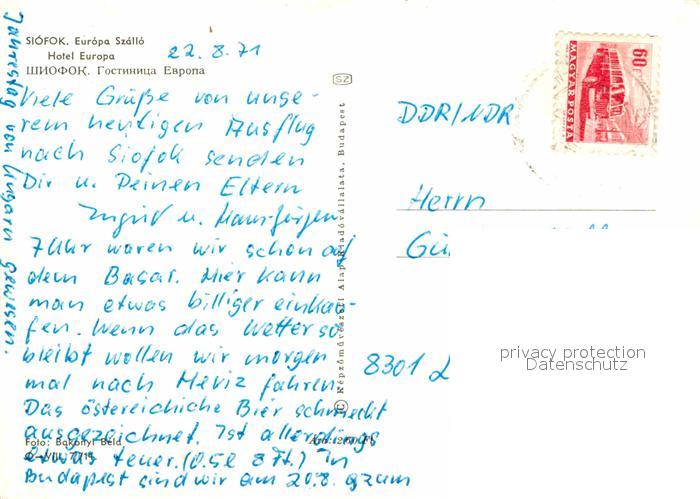 SIÓFOK. Európa Szálló
Hotel Europa
ШИОФОК. Гостиница Европа
22.8.71
Viele Grüße von unse-
rem heutigen Ausflug
nach Siofok senden
Dir u. Deinen Eltern
Ingrid u. Hans-Jürgen
7 Uhr waren wir schon auf
dem Basar. Hier kann
man etwas billiger einkau-
fen. Wenn das Wetter so
bleibt wollen wir morgen
mal nach Héviz fahren.
Das östereichiche Bier schmeckt
ausgezeichnet. Ist allerdings
etwas teuer. (0,5l 8 Ft.) In
Budapest sind wir am 20.8. ganzen
Jahrestag von Ungarn gewesen.
Foto: Bakonyi Béla
SZ
© Képzőművészeti Alap Kiadóvállalata, Budapest
60f
MAGYAR POSTA
DDR/NDR
Herrn
Gü
8301
privacy protection
Datenschutz